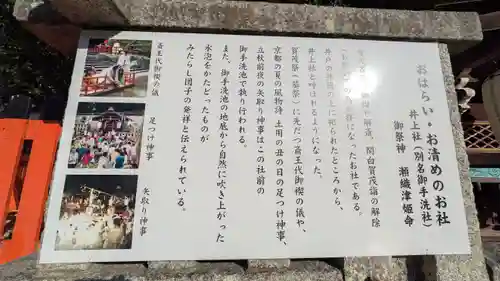 おはらい・お清めのお社
井上社(別名御手洗社)
御祭神 瀬織津姫命
解斎、関白賀茂詣の解除
になったお社である。
井戸の上に祀られたところから、
井上社と呼ばれるようになった。
賀茂祭(葵祭)に先だつ斎王代御禊の儀や、
京都の夏の風物詩、土用の丑の日の足つけ神事、
立秋前夜の矢取り神事はこの社前の
御手洗池で執り行われる。
また、御手洗池の池底から自然に吹き上がった
水泡をかたどったものが
みたらし団子の発祥と伝えられている。
斎王代の御禊の儀
足つけ神事
矢取り神事